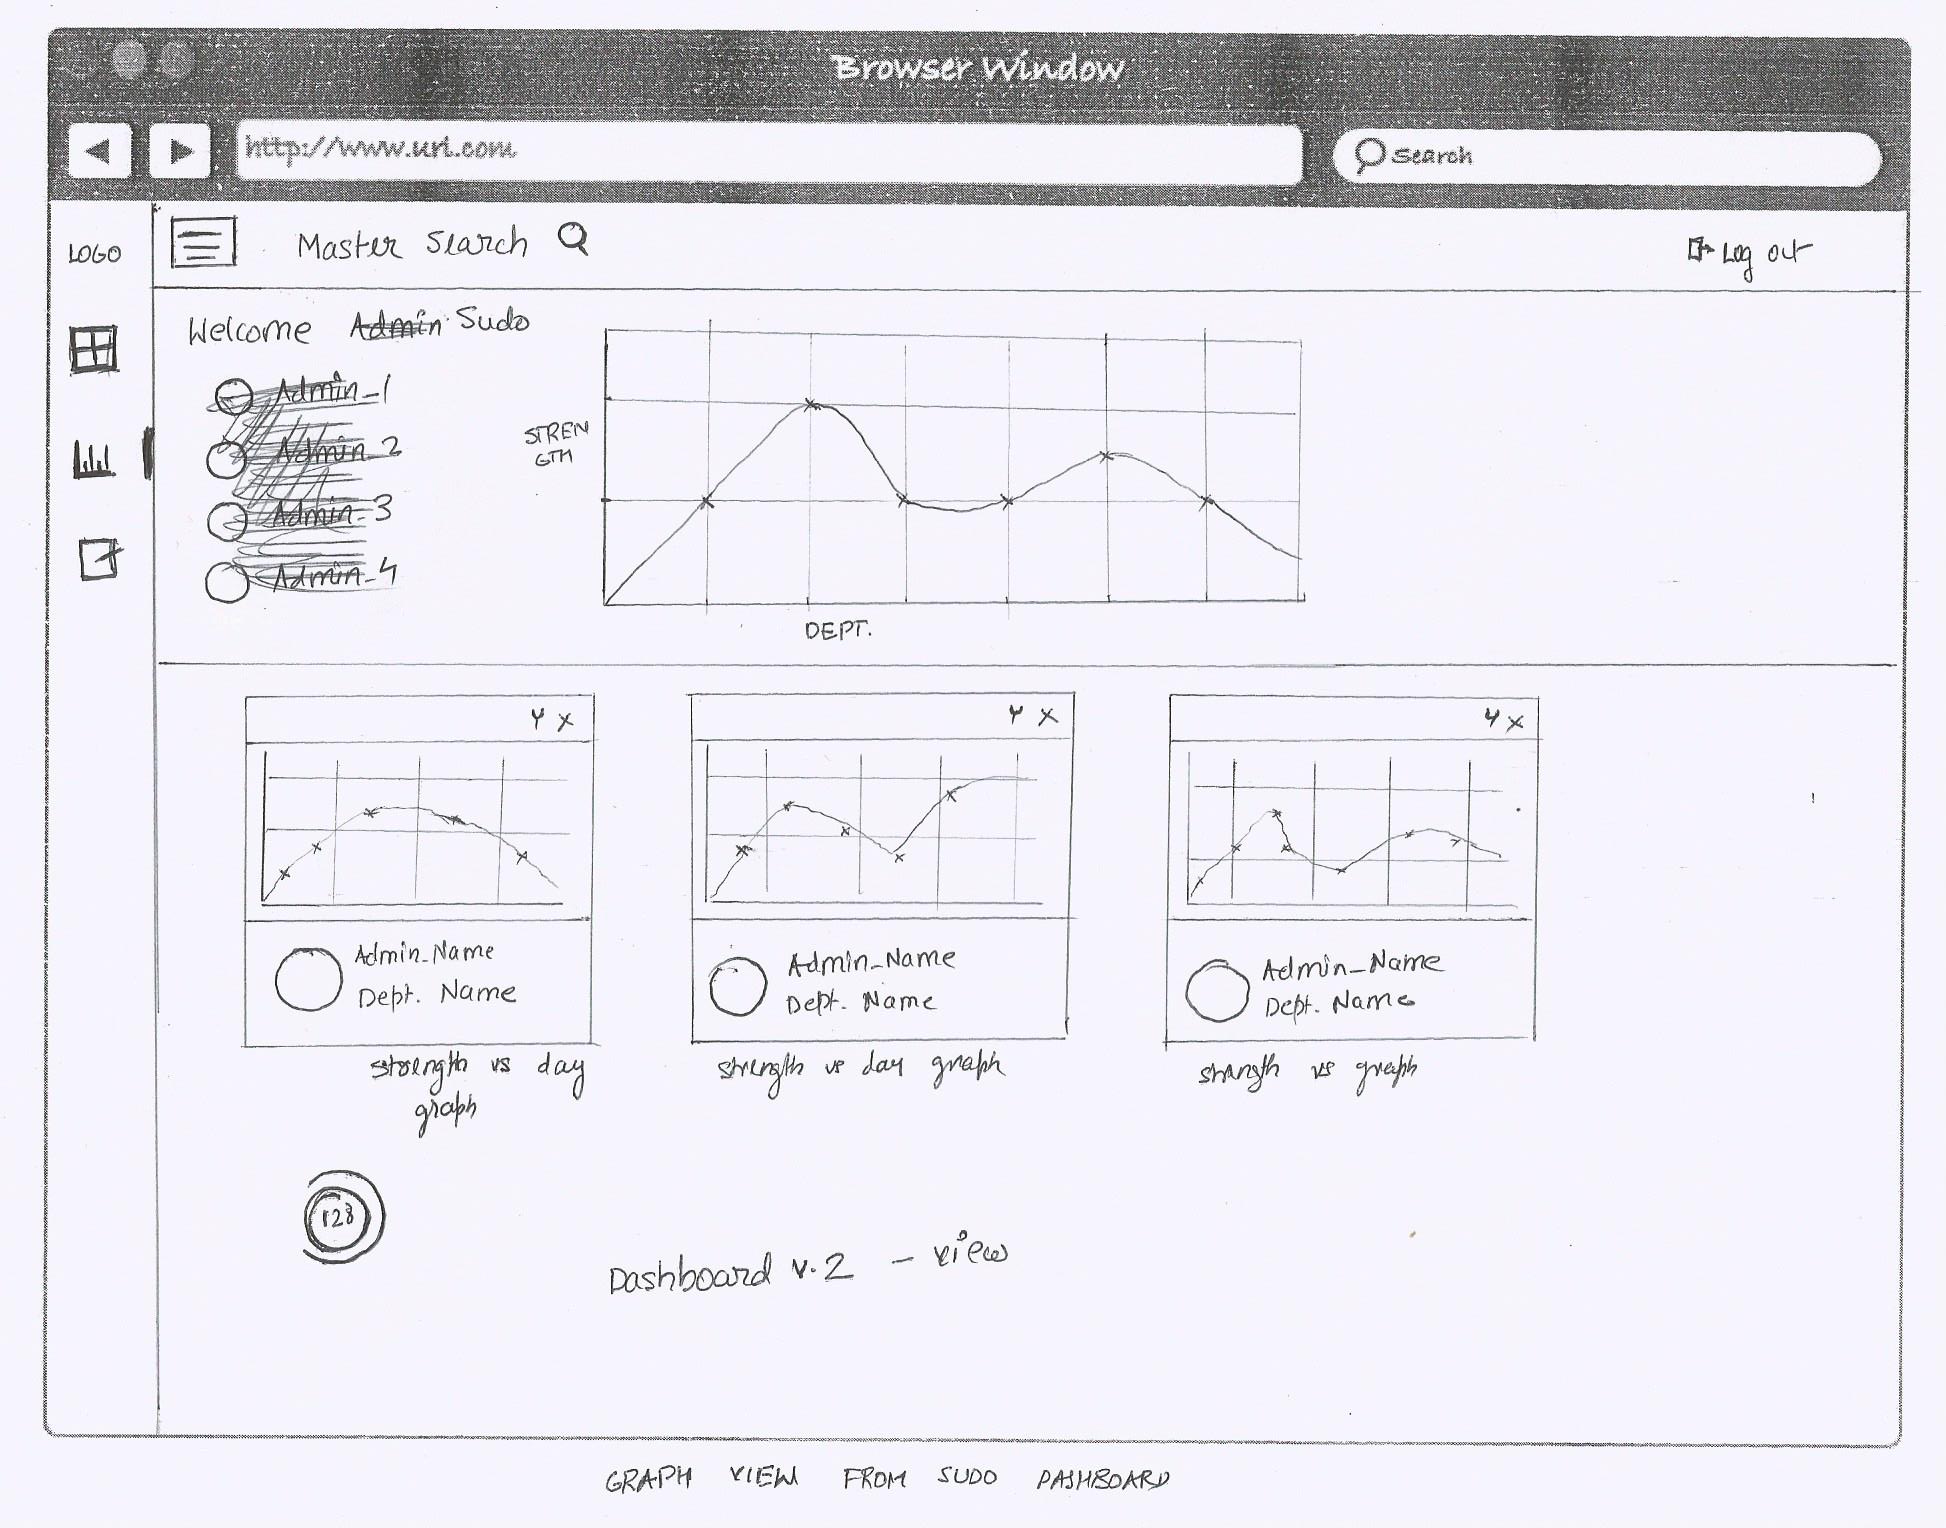 Browser Window
http://www.url.com
Search
LOGO
Master Search
Log out
Welcome Admin Sudo
Admin_1
Admin_2
Admin_3
Admin_4
STREN
GTH
DEPT.
Y X
Y X
Y X
Admin_Name
Dept. Name
Admin_Name
Dept. Name
Admin_Name
Dept. Name
strength vs day
graph
strength vs day graph
strength vs graph
128
Dashboard v.2 - view
GRAPH VIEW FROM SUDO DASHBOARD